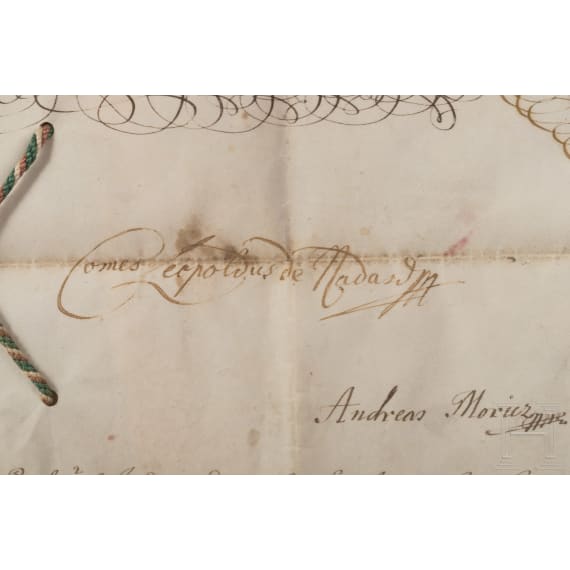 Comes Leopoldus de Nadasd
Andreas Moricz